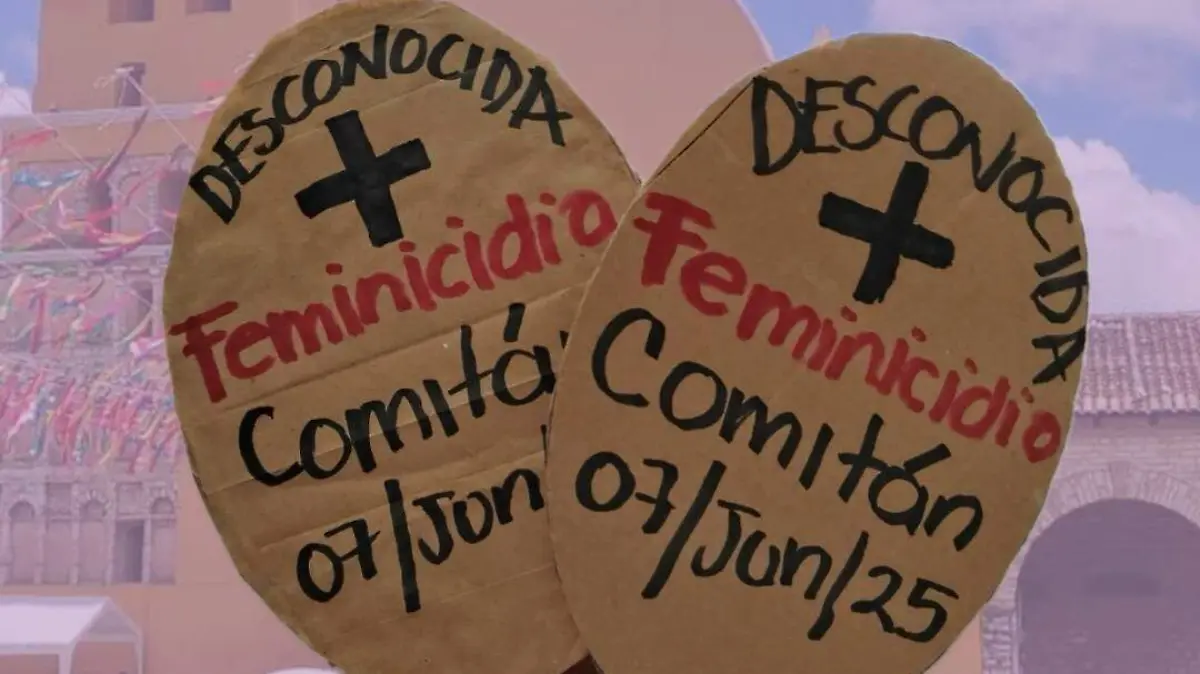 DESCONOCIDA
+
Feminicidio
Comitá
07/Jun
DESCONOCIDA
+
Feminicidio
Comitán
07/Jun/25